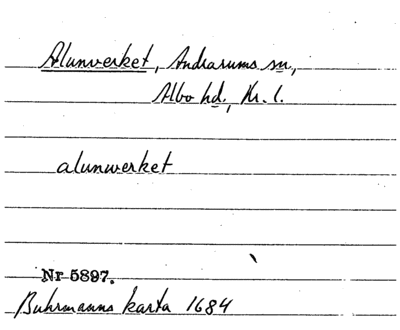 Alunverket, Andrarums sn,
Albo hd., Kr. l.
alunwerket
Nr 5897.
Buhrmanns karta 1684